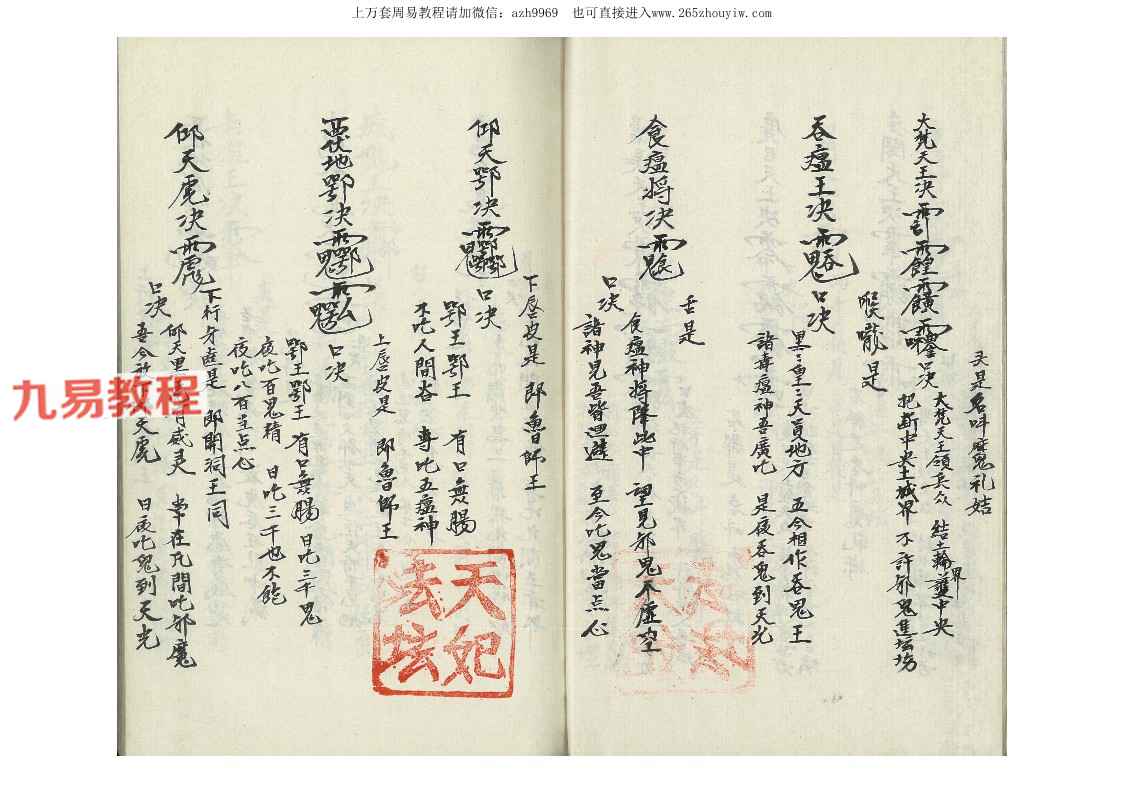 上万套周易教程请加微信：azh9969 也可直接进入www.265zhouyiw.com
头是名叫魔礼姑
大梵天王决
口决
大梵天王領兵众 結土輪界護中央
把断中央土城界 不許邪鬼進坛场
吞瘟王决
喉嚨是
口决
黑黑皇皇天員地方 五今相作吞鬼王
諸毒瘟神吾廣吃 是夜吞鬼到天光
食瘟将决
舌是
口决
食瘟神将降此中 望見邪鬼不虚空
諸神見吾皆迴避 至今吃鬼當点心
仰天鄂决
下唇皮是 即魯師王
口决
鄂王鄂王 有口無腸
不吃人間谷 專吃五瘟神
地鄂决
上唇皮是 即魯師王
口决
鄂王鄂王 有口無腸 日吃三千鬼
夜吃百鬼精 日吃三千也不能
夜吃八百至点心
仰天虎决
下行牙齒是 即開洞王同
口决
仰天 威灵 常在凡間吃邪魔
吾今 天虎 日夜吃鬼到天光
九易教程
天妃
法坛